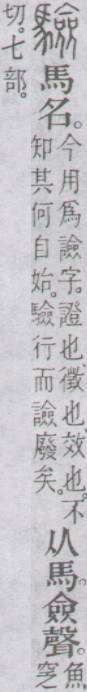 驗馬名。今用爲譣字。證也。徵也。效也。不
知其何自始。驗行而譣廢矣。从馬。僉聲。魚窆
切。七部。